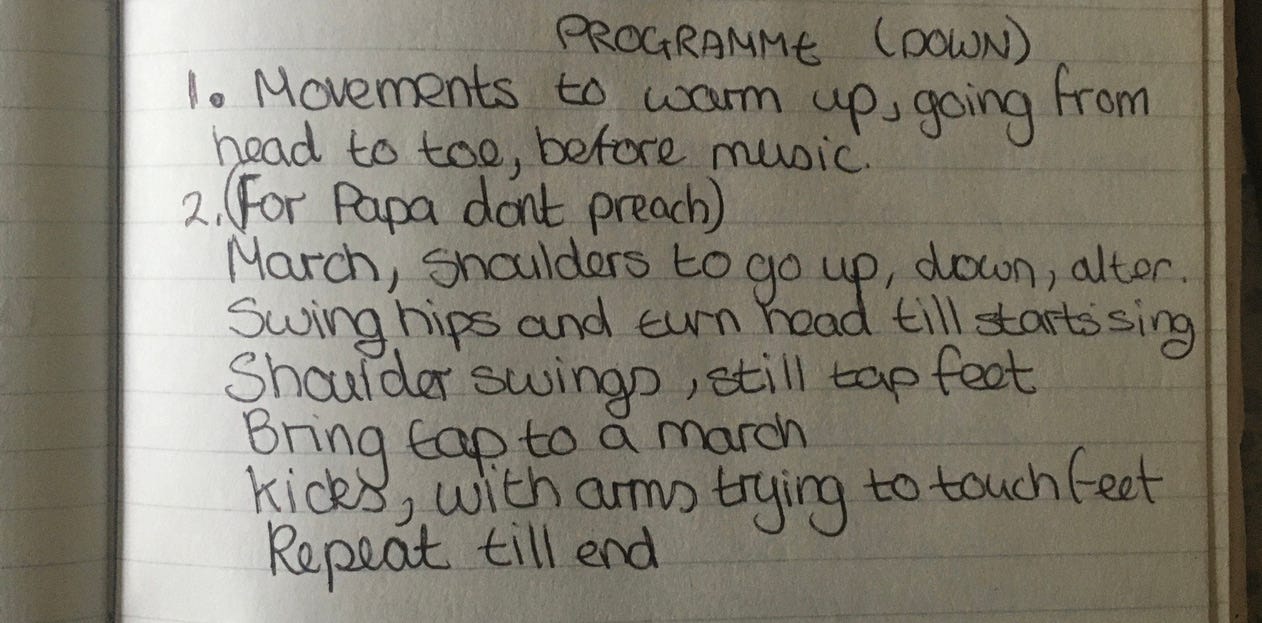 PROGRAMME (DOWN)
1. Movements to warm up, going from
head to toe, before music.
2. (For Papa dont preach)
March, shoulders to go up, down, alter.
Swing hips and turn head till starts sing
Shoulder swings, still tap feet
Bring tap to a march
Kicks, with arms trying to touch feet
Repeat till end